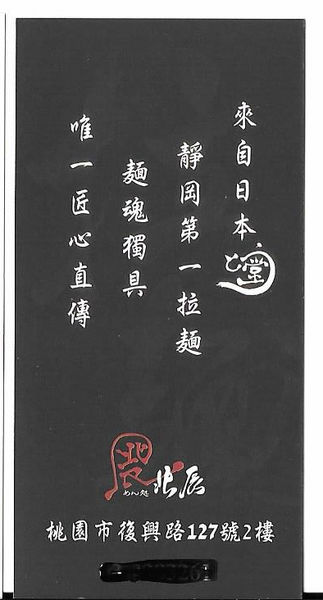 來自日本
靜岡第一拉麵
麵魂獨具
唯一匠心直傳
めん処
北辰
桃園市復興路127號2樓